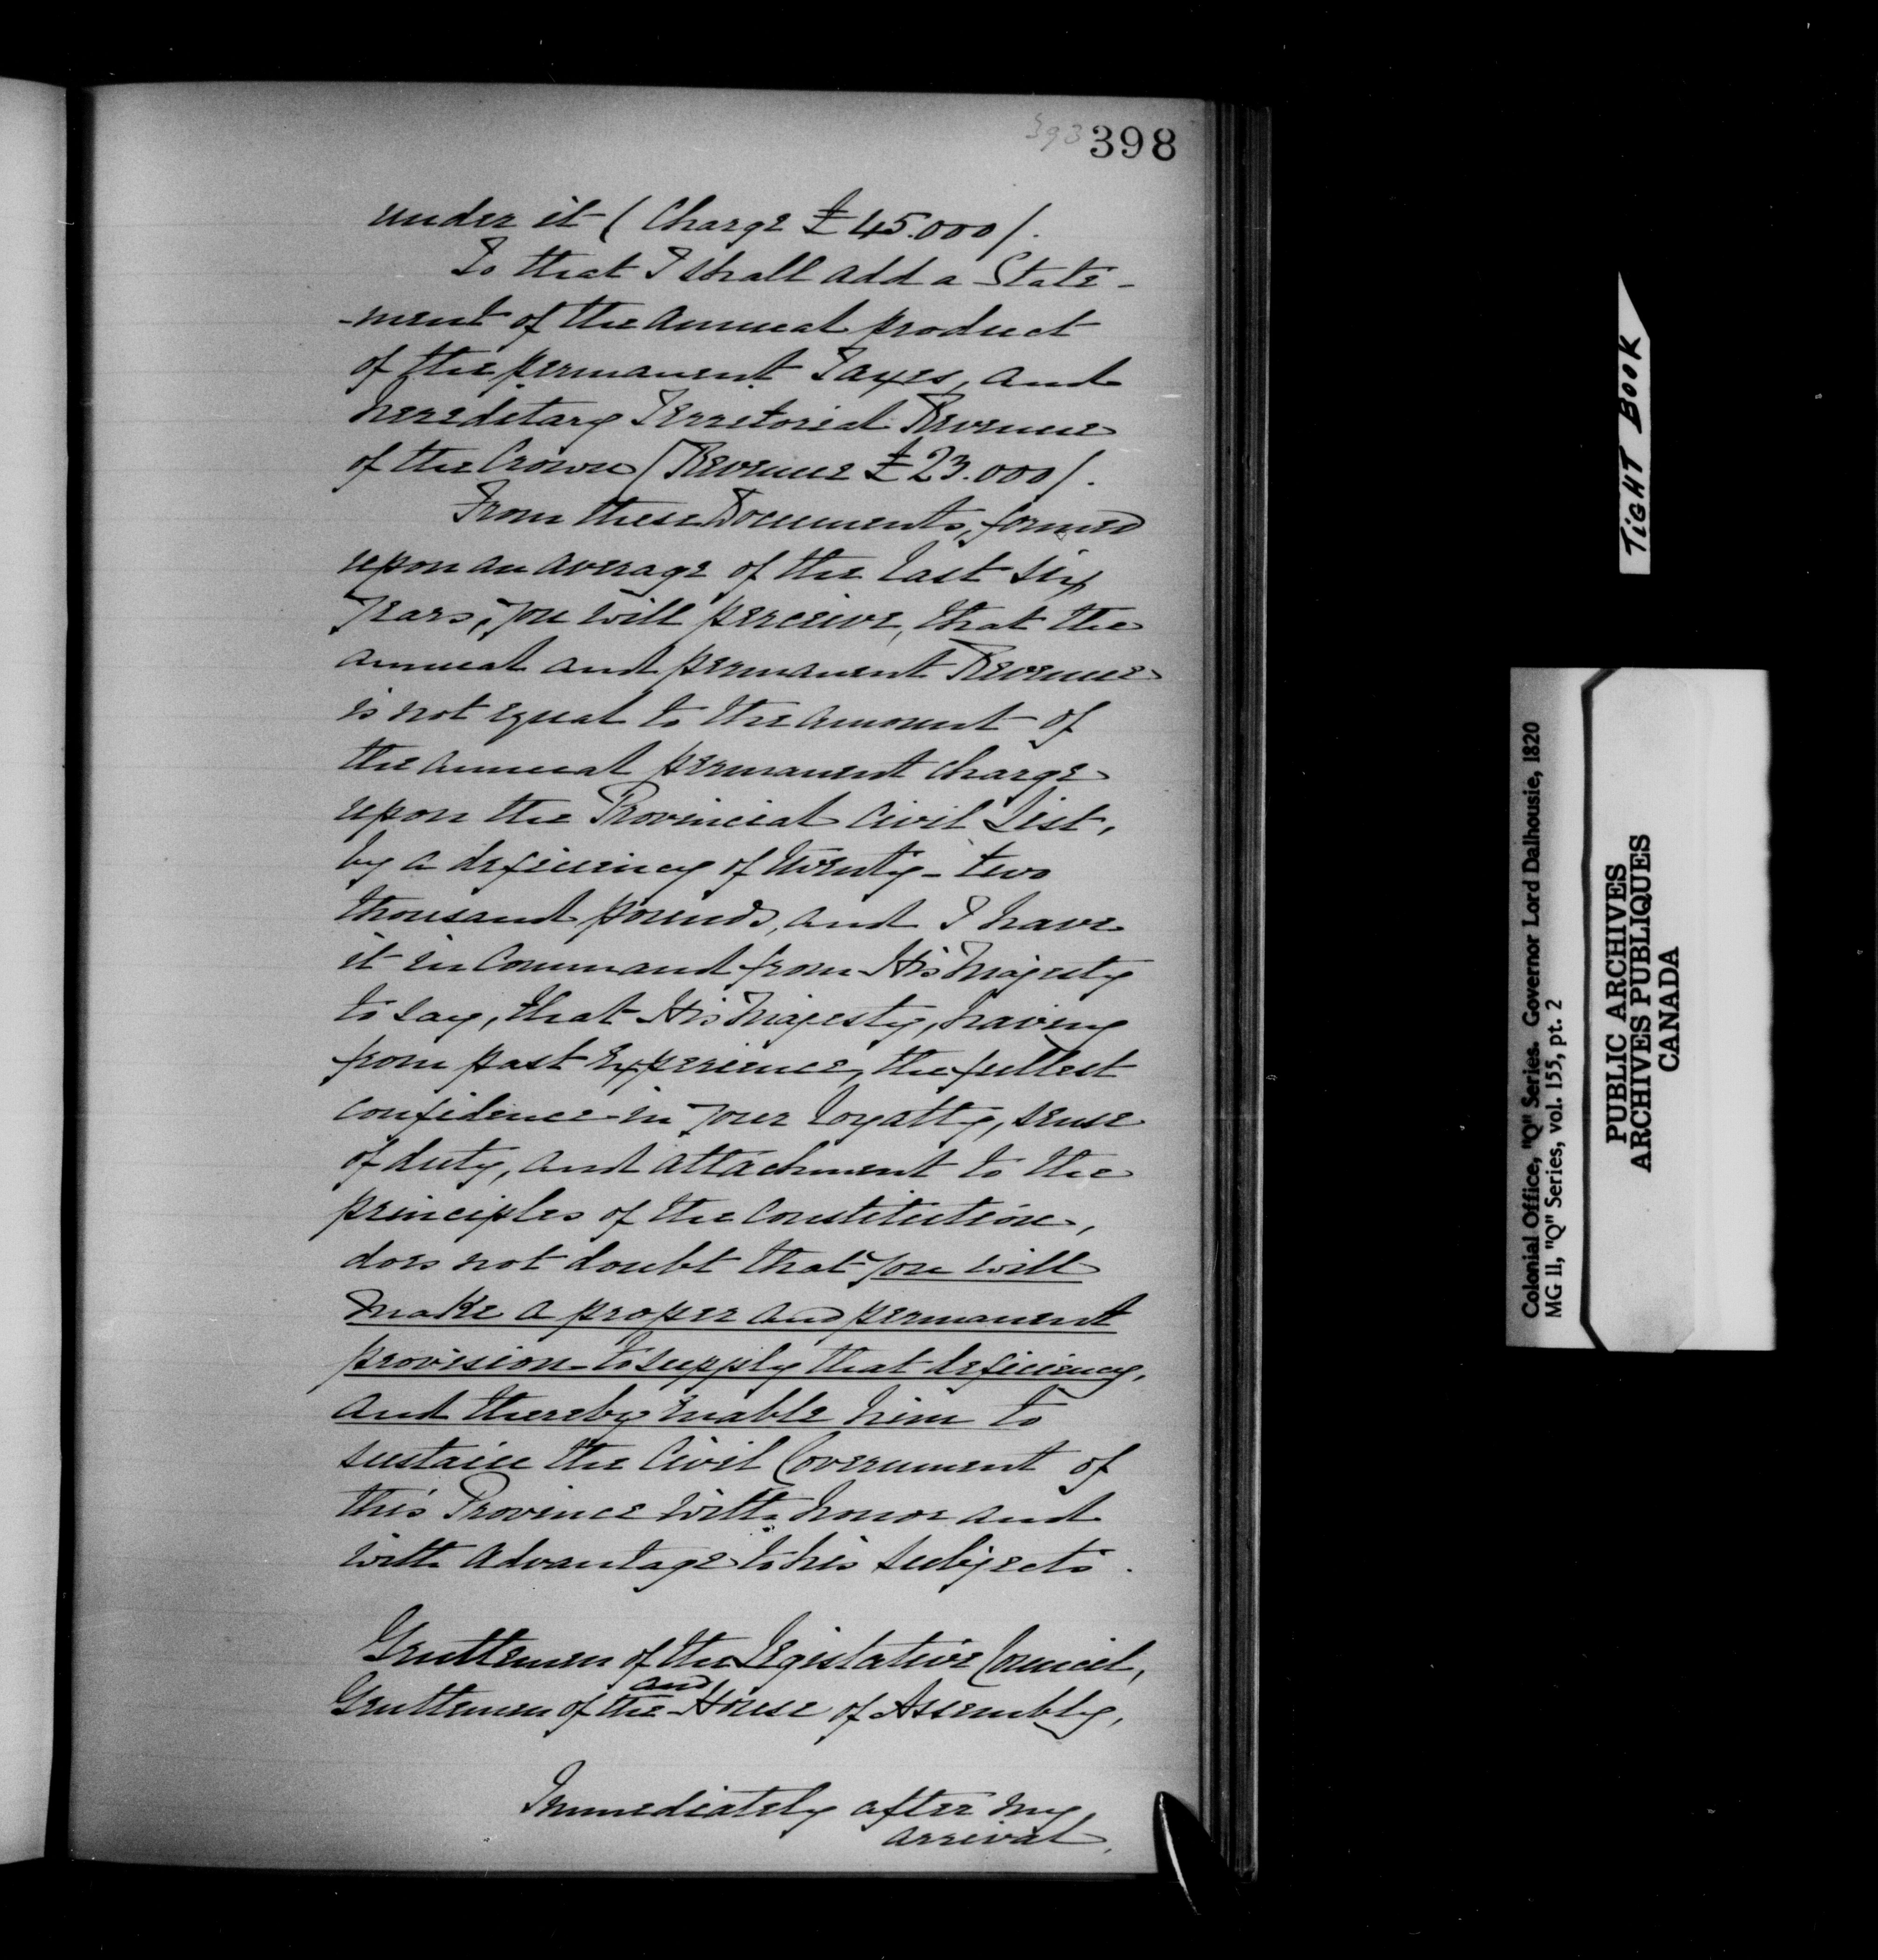 393 398
under it (Charge £45.000).
To that I shall add a State-
-ment of the annual product
of the permanent Taxes, and
hereditary Territorial Revenue
of the Crown (Revenue £23.000).
From these Documents, formed
upon an average of the last six
Years, you will perceive, that the
annual and permanent Revenue
is not equal to the amount of
the annual permanent charge
upon the Provincial Civil List,
by a deficiency of twenty-two
thousand pounds, and I have
it in Command from His Majesty
to say, that His Majesty, having
from past experience, the fullest
confidence in your loyalty, sense
of duty, and attachment to the
principles of the Constitution,
does not doubt that you will
make a proper and permanent
provision to supply that deficiency,
and thereby enable him to
sustain the Civil Government of
this Province with honor and
with advantage to his subjects.
Gentlemen of the Legislative Council,
and
Gentlemen of the House of Assembly,
Immediately after my
arrival,
TIGHT BOOK
Colonial Office, "Q" Series. Governor Lord Dalhousie, 1820
MG 11, "Q" Series, vol. 155, pt. 2
PUBLIC ARCHIVES
ARCHIVES PUBLIQUES
CANADA